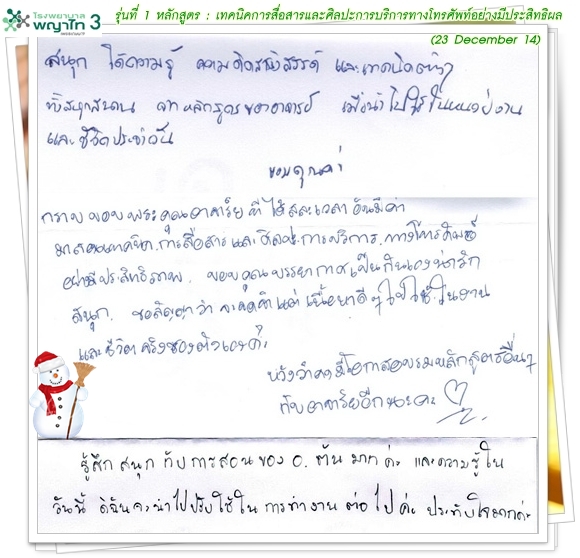 โรงพยาบาล
พญาไท 3
รุ่นที่ 1 หลักสูตร : เทคนิคการสื่อสารและศิลปะการบริการทางโทรศัพท์อย่างมีประสิทธิผล
(23 December 14)
สนุก ได้ความรู้ ความคิดสร้างสรรค์ และเทคนิคต่างๆ
ทั้งสนุกสนาน จากหลักสูตรของอาจารย์ เพื่อนำไปใช้ในหน่วยงาน
และชีวิตประจำวัน
ขอบคุณค่ะ
กราบขอบพระคุณอาจารย์ที่ได้สละเวลาอันมีค่า
มาสอนเทคนิค.การสื่อสารและศิลปะ.การบริการ.ทางโทรศัพท์
อย่างมีประสิทธิภาพ. ขอบคุณบรรยากาศเป็นกันเองน่ารัก
สนุก. ขอสัญญาว่า จะจดจำแต่เนื้อหาดีๆไปใช้.ในงาน
และชีวิตจริงของตัวเองค่ะ
หวังว่าคงมีโอกาสอบรมหลักสูตรอื่นๆ
กับอาจารย์อีกนะคะ
รู้สึก สนุก กับการสอนของ อ. ต้น มาก ค่ะ และความรู้ใน
วันนี้ ดิฉันจะนำไปปรับใช้ใน การทำงาน ต่อไป ค่ะ ประทับใจมากค่ะ